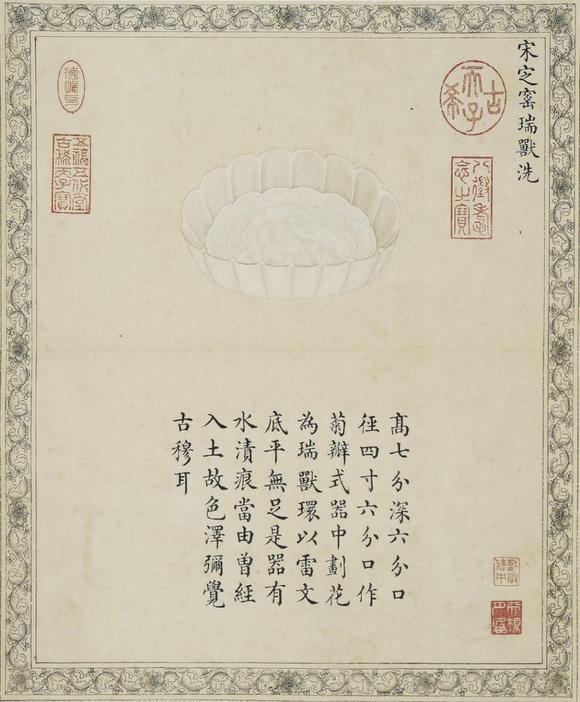 宋㝎窰瑞獸洗
古希天子
八徵耄
念之寶
髙七分深六分口
徑四寸六分口作
菊瓣式器中劃花
為瑞獸環以雷文
底平無足是器有
水漬痕當由曽經
入土故色澤彌覺
古穆耳
五福五代堂
古稀天子寶